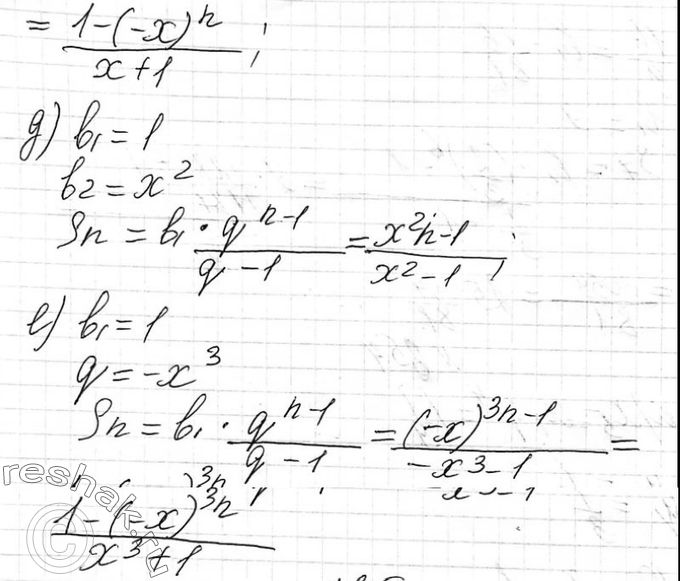 = (1-(-x)^n)/(x+1);
д) b₁ = 1
b₂ = x²
Sn = b₁ · (q^(n-1))/(q-1) = (x^(2n)-1)/(x²-1);
е) b₁ = 1
q = -x³
Sn = b₁ · (q^(n-1))/(q-1) = ((-x)^(3n-1))/(-x³-1) =
(1-(-x)^(3n))/(x³+1)
reshak.ru